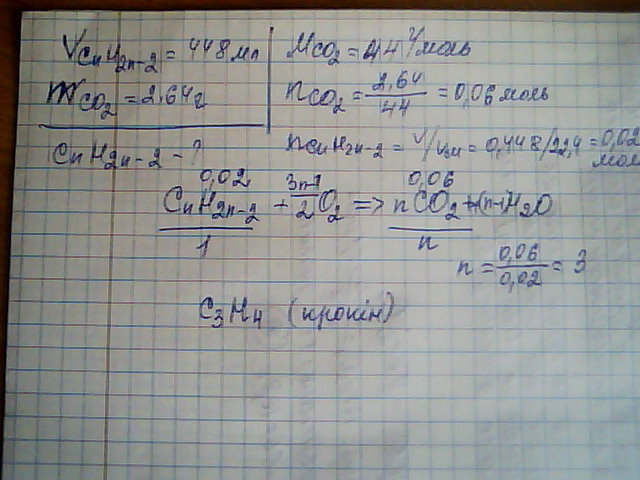 V CnH2n-2 = 448 мл
m CO2 = 2,64 г
CnH2n-2 - ?
M CO2 = 44 г/моль
n CO2 = 2,64/44 = 0,06 моль
n CnH2n-2 = V/Vm = 0,448/22,4 = 0,02 моль
0,02 0,06
CnH2n-2 + 3n-1/2 O2 => nCO2 + (n-1)H2O
1 n
n = 0,06/0,02 = 3
C3H4 (пропін)